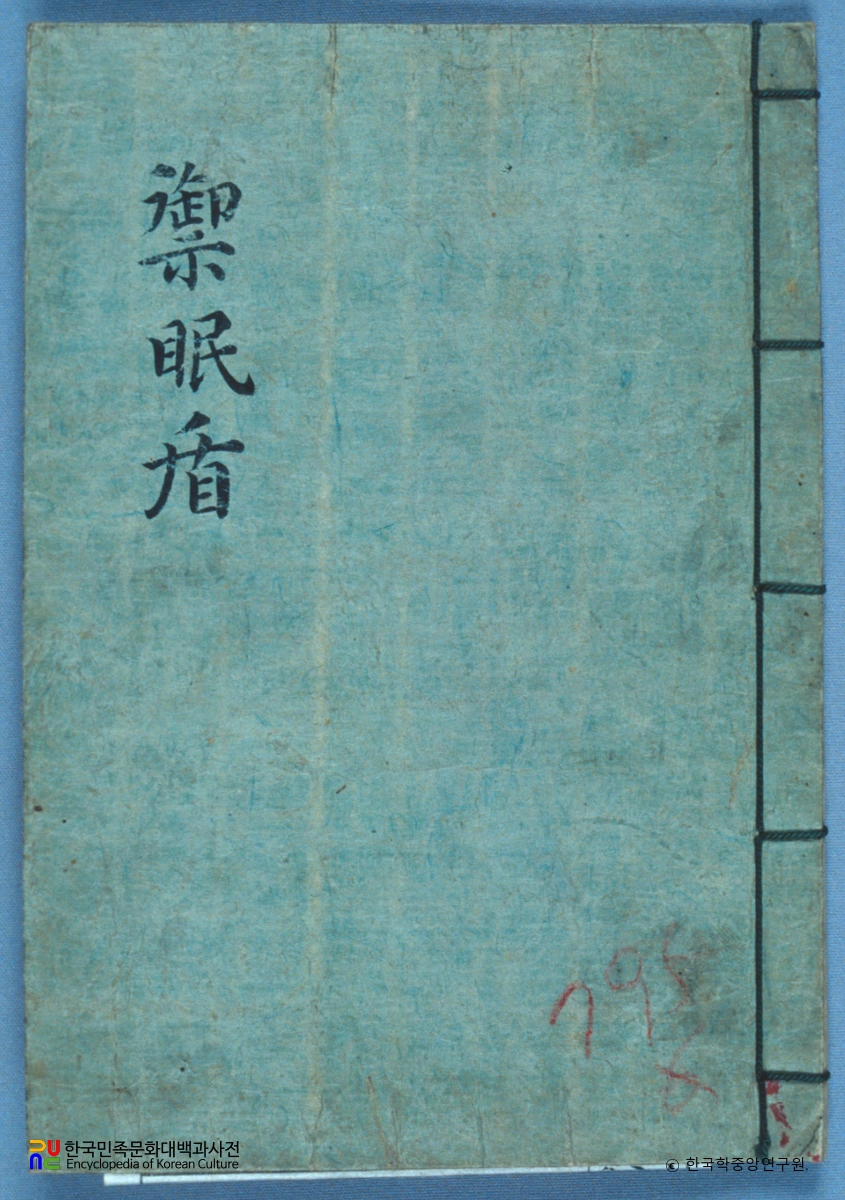 禦眠盾
795
한국민족문화대백과사전
Encyclopedia of Korean Culture
ⓒ 한국학중앙연구원.